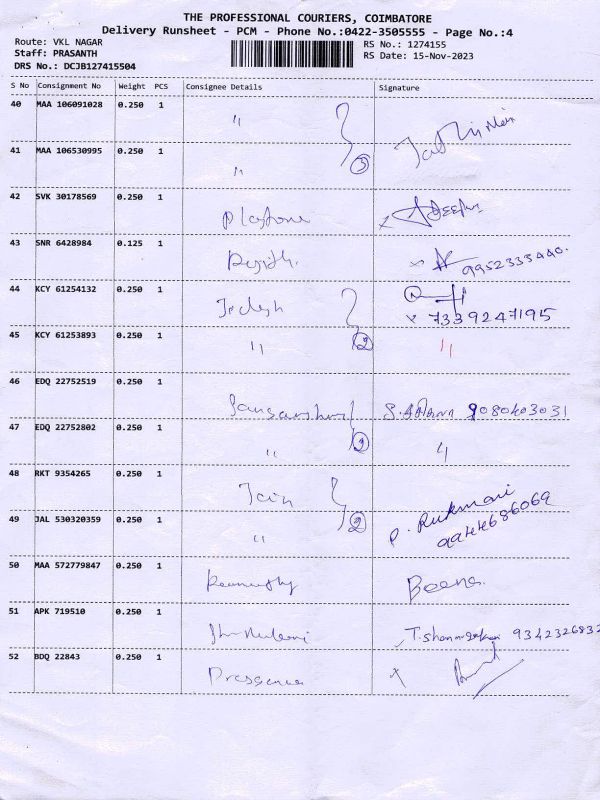 THE PROFESSIONAL COURIERS, COIMBATORE
Delivery Runsheet - PCM - Phone No.:0422-3505555 - Page No.:4
Route: VKL NAGAR
Staff: PRASANTH
DRS No.: DCJB127415504
RS No.: 1274155
RS Date: 15-Nov-2023
S No Consignment No Weight PCS Consignee Details Signature
40 MAA 106091028 0.250 1 "
41 MAA 106530995 0.250 1 " 3
42 SVK 30178569 0.250 1
43 SNR 6428984 0.125 1
44 KCY 61254132 0.250 1
7339247195
45 KCY 61253893 0.250 1 " 2 "
46 EDQ 22752519 0.250 1 9080403031
47 EDQ 22752802 0.250 1 " 2 "
48 RKT 9354265 0.250 1 Jain
P. Rukmani
49 JAL 530320359 0.250 1 " 2 9944686069
50 MAA 572779847 0.250 1 Beena.
51 APK 719510 0.250 1
52 BDQ 22843 0.250 1